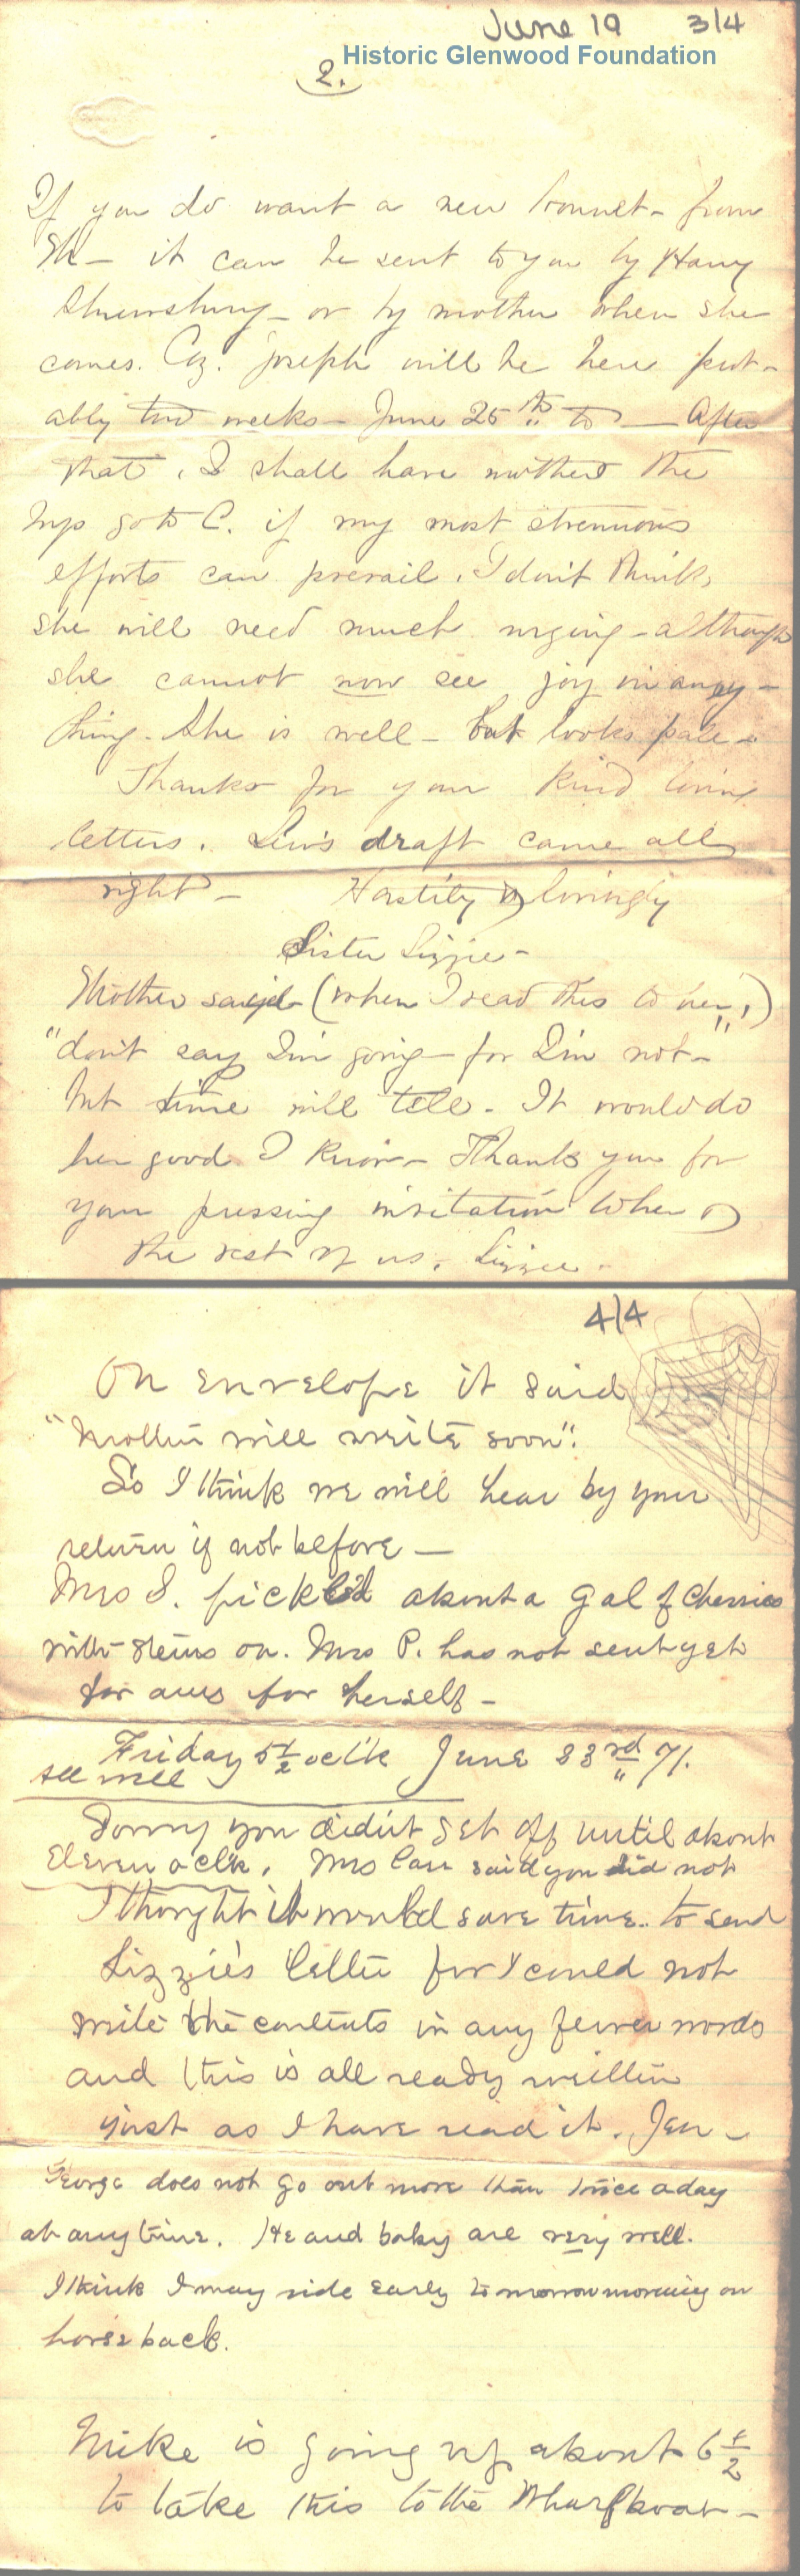 June 19 3/4
Historic Glenwood Foundation
2.
If you do want a new bonnet - from
it can be sent to you by Harry
Shrewsbury - or by mother when she
comes. Coz. Joseph will be here prob-
ably two weeks - June 25th to — After
that, I shall have mother the
go to C. if my most strenuous
efforts can prevail. I don't think
she will need much urging - although
she cannot now see joy in any -
thing. She is well - but looks pale -
Thanks for your kind loving
letters. Lew's draft came all
right - Hastily & lovingly
Sister Lizzie -
Mother said (when I read this to her,)
"don't say I'm going - for I'm not -"
but time will tell - It would do
her good I know - Thank you for
your pressing invitation to her &
the rest of us. Lizzie -
4/4
On envelope it said
"Mother will write soon".
So I think we will hear by your
return if not before —
Mrs S. pickled about a gal of Cherries
with stems on. Mrs P. has not sent yet
for ours for herself -
Friday 5 1/2 oclk June 23rd 71.
All well
Sorry you didn't get off until about
Eleven oclk. Mrs Carr said you did not
I thought it would save time to send
Lizzie's letter for I could not
write the contents in any fewer words
and this is all ready written
just as I have read it. Jen -
George does not go out more than twice a day
at any time. He and baby are very well.
I think I may ride early tomorrow morning on
horse back.
Mike is going up about 6 1/2
to take this to the Wharfboat -